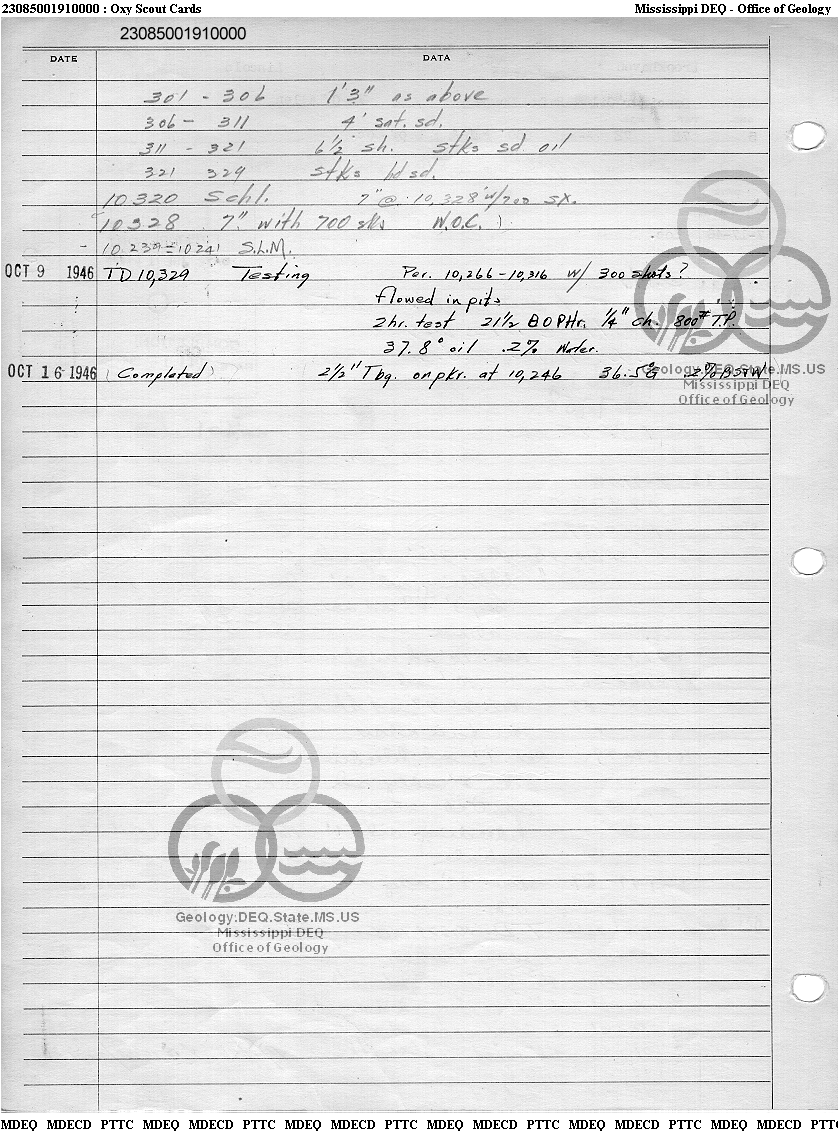 23085001910000 : Oxy Scout Cards Mississippi DEQ - Office of Geology
23085001910000
DATE DATA
301 - 306 1'3" as above
306 - 311 4' sat. sd.
311 - 321 6½ sh. stks sd. oil
321 329 stks hd sd.
10320 Schl. 7" @ 10,328' w/700 sx.
10328 7" with 700 sks W.O.C.
10 239 = 10241 S.L.M.
OCT 9 1946 TD 10,329 Testing Per. 10,266-10,316 w/ 300 shots?
flowed in pits
2hr. test 21½ BOPHr. ¼" ch. 800# T.P.
37.8° oil .2% Water.
OCT 16 1946 (Completed) 2½" Tbg. on pkr. at 10,246 36.5°G .2% BS&W
Geology.DEQ.State.MS.US
Mississippi DEQ
Office of Geology
Geology.DEQ.State.MS.US
Mississippi DEQ
Office of Geology
MDEQ MDECD PTTC MDEQ MDECD PTTC MDEQ MDECD PTTC MDEQ MDECD PTTC MDEQ MDECD PTTC MDEQ MDECD PTT